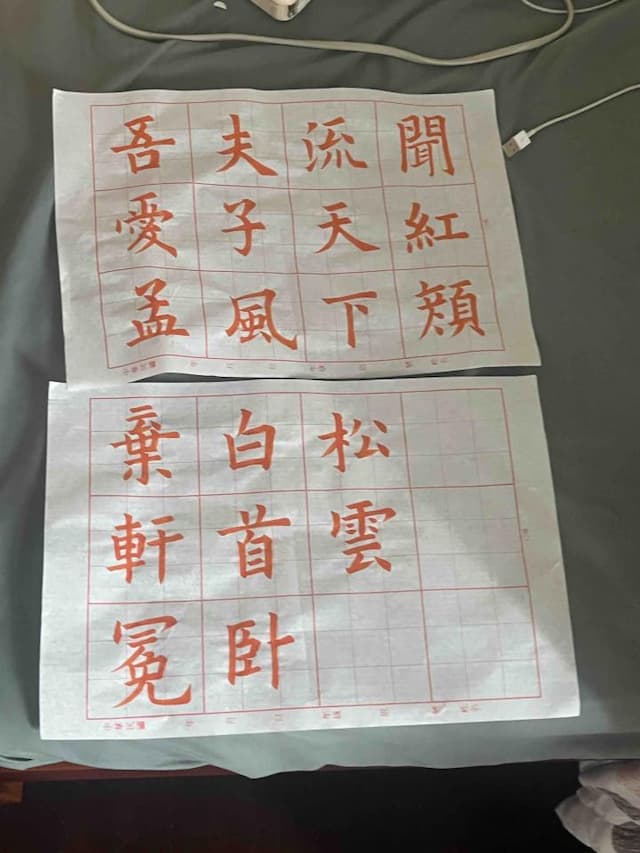 吾愛孟
夫子風
流天下
聞紅顏
棄軒冕
白首卧
松雲